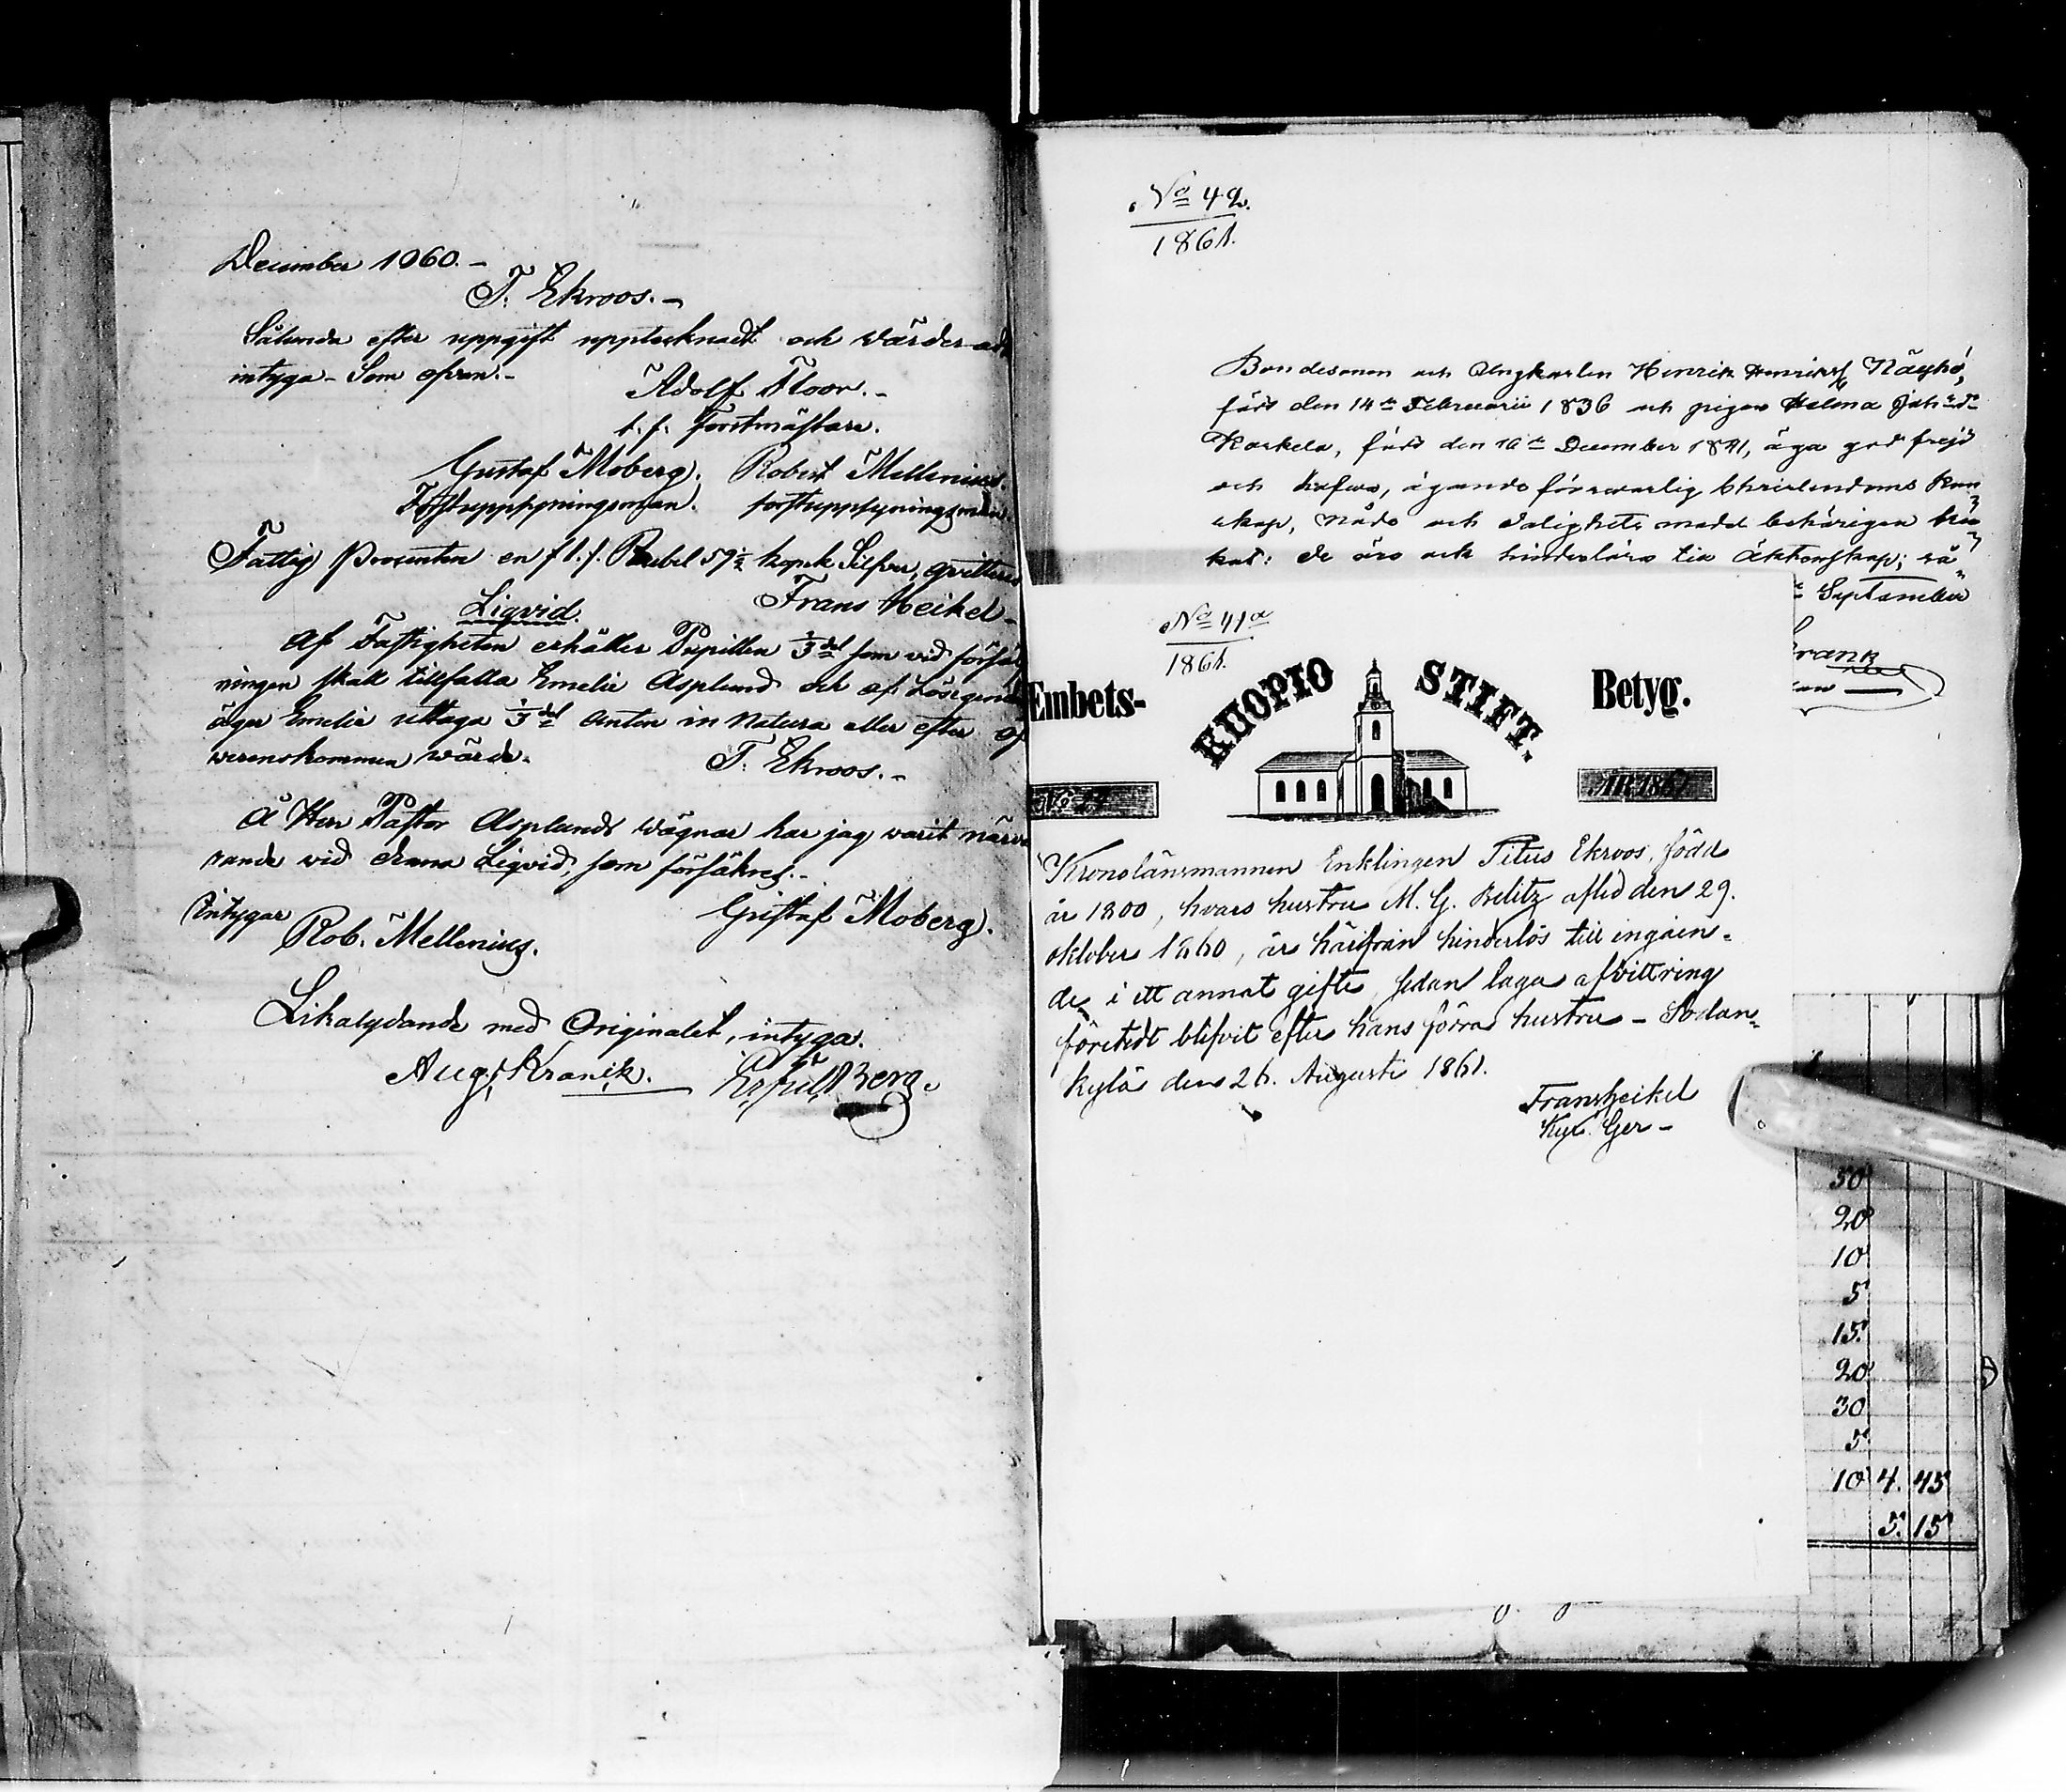 December 1860.-
T. Ekroos.-
Sålunda efter uppgift upptecknadt och värderadt
intyga - Som ofvan.-
Adolf Floor.-
t. f. Forstmästare.
Gustaf Moberg. Robert Mellenius.
Forstuppsyningsman. forstuppsyningsman.
Fattig Procenten en /1./. Rubel 57½ kopek Silfver, qvitteras
Frans Heikel-
Liqvid.
Af Fastigheten erhåller Pupillen ⅓del som vid försälj
ningen skall tillfalla Emelie Asplund och af Lösegendom
äger Emelie uttaga ⅓del Anten in Natura eller efter öf
verenskommen värde.
T. Ekroos.-
Å Herr Pastor Asplunds vägnar har jag varit närva
rande vid denna Liqvid, som försäkras.-
Gustaf Moberg.
Intygar
Rob. Mellenius.
Likalydande med Originalet, intyga.
Aug. Kranck. Berg.
No 42.
1861.
Bondesonen och Ungkarlen Henrik Henrikss Näyhö,
född den 14de Februarii 1836 och pigan Helena Johsdr
Karkela, född den 10de December 1841, äga god frejd
och hafva, ägande försvarlig Christendoms kun
skap, Nådo och Salighets medel behörigen bru
kat: de äro ock hinderlösa till Äktenskap; så
September
Frank
No 41a
1861.
Embets- KUOPIO STIFT. Betyg.
No 29 ÅR 1861
Kronolänsmannen Enklingen Titus Ekroos, född
år 1800, hvars hustru M. G. Belitz afled den 29.
oktober 1860, är härifrån hinderlös till ingåen-
de i ett annat gifte, sedan laga afvittring
företedt blifvit efter hans förra hustru - Sodan-
kylä den 26. Augusti 1861.
Frans Heikel
Kyr. Ger -
50
20
10
5
15
20
30
5
10 4. 45
5. 15